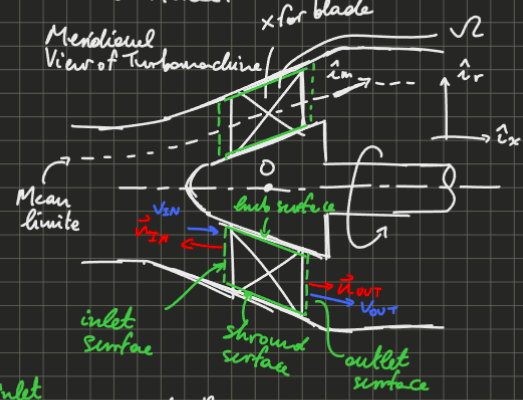 x for blade
Meridional
View of Turbomachine
Ω
î_m
î_r
î_x
Mean
limite
O
hub surface
V_IN
n⃗_IN
n⃗_OUT
V_OUT
inlet
surface
shround
surface
outlet
surface
inlet